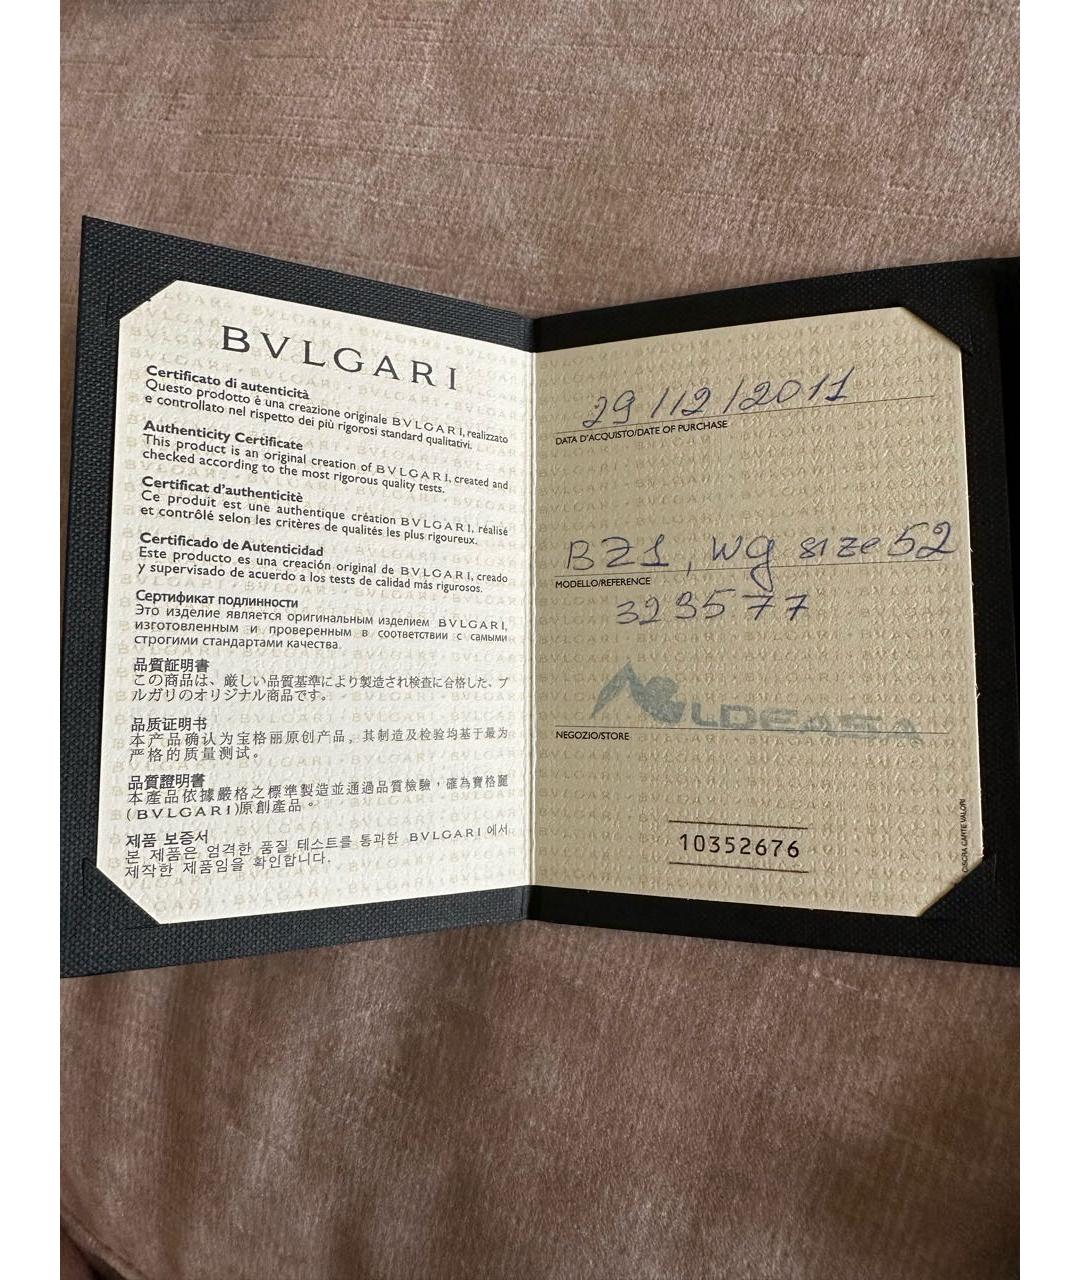 BVLGARI
Certificato di autenticità
Questo prodotto è una creazione originale BVLGARI, realizzato
e controllato nel rispetto dei più rigorosi standard qualitativi.
Authenticity Certificate
This product is an original creation of BVLGARI, created and
checked according to the most rigorous quality tests.
Certificat d'authenticitè
Ce produit est une authentique création BVLGARI, réalisé
et contrôlé selon les critères de qualités les plus rigoureux.
Certificado de Autenticidad
Este producto es una creación original de BVLGARI, creado
y supervisado de acuerdo a los tests de calidad más rigurosos.
Сертификат подлинности
Это изделие является оригинальным изделием BVLGARI,
изготовленным и проверенным в соответствии с самыми
строгими стандартами качества.
品質証明書
この商品は、厳しい品質基準により製造され検査に合格した、ブ
ルガリのオリジナル商品です。
品质证明书
本产品确认为宝格丽原创产品，其制造及检验均基于最为
严格的质量测试。
品質證明書
本產品依據嚴格之標準製造並通過品質檢驗，確為寶格麗
(BVLGARI)原創產品。
제품 보증서
본 제품은 엄격한 품질 테스트를 통과한 BVLGARI에서
제작한 제품임을 확인합니다.
29/12/2011
DATA D'ACQUISTO/DATE OF PURCHASE
BZ1, wg size 52
MODELLO/REFERENCE
323577
ALDEASA
NEGOZIO/STORE
10352676